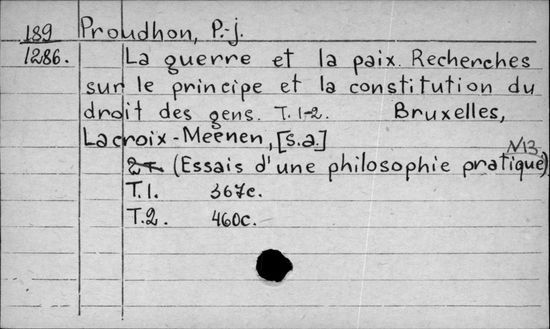 189 Proudhon, P.-j.
1286. La guerre et la paix. Recherches
sur le principe et la constitution du
droit des gens. T. 1-2. Bruxelles,
Lacroix-Meenen, [s.a.]
(Essais d'une philosophie pratique, N13)
T.1. 367c.
T.2. 460c.